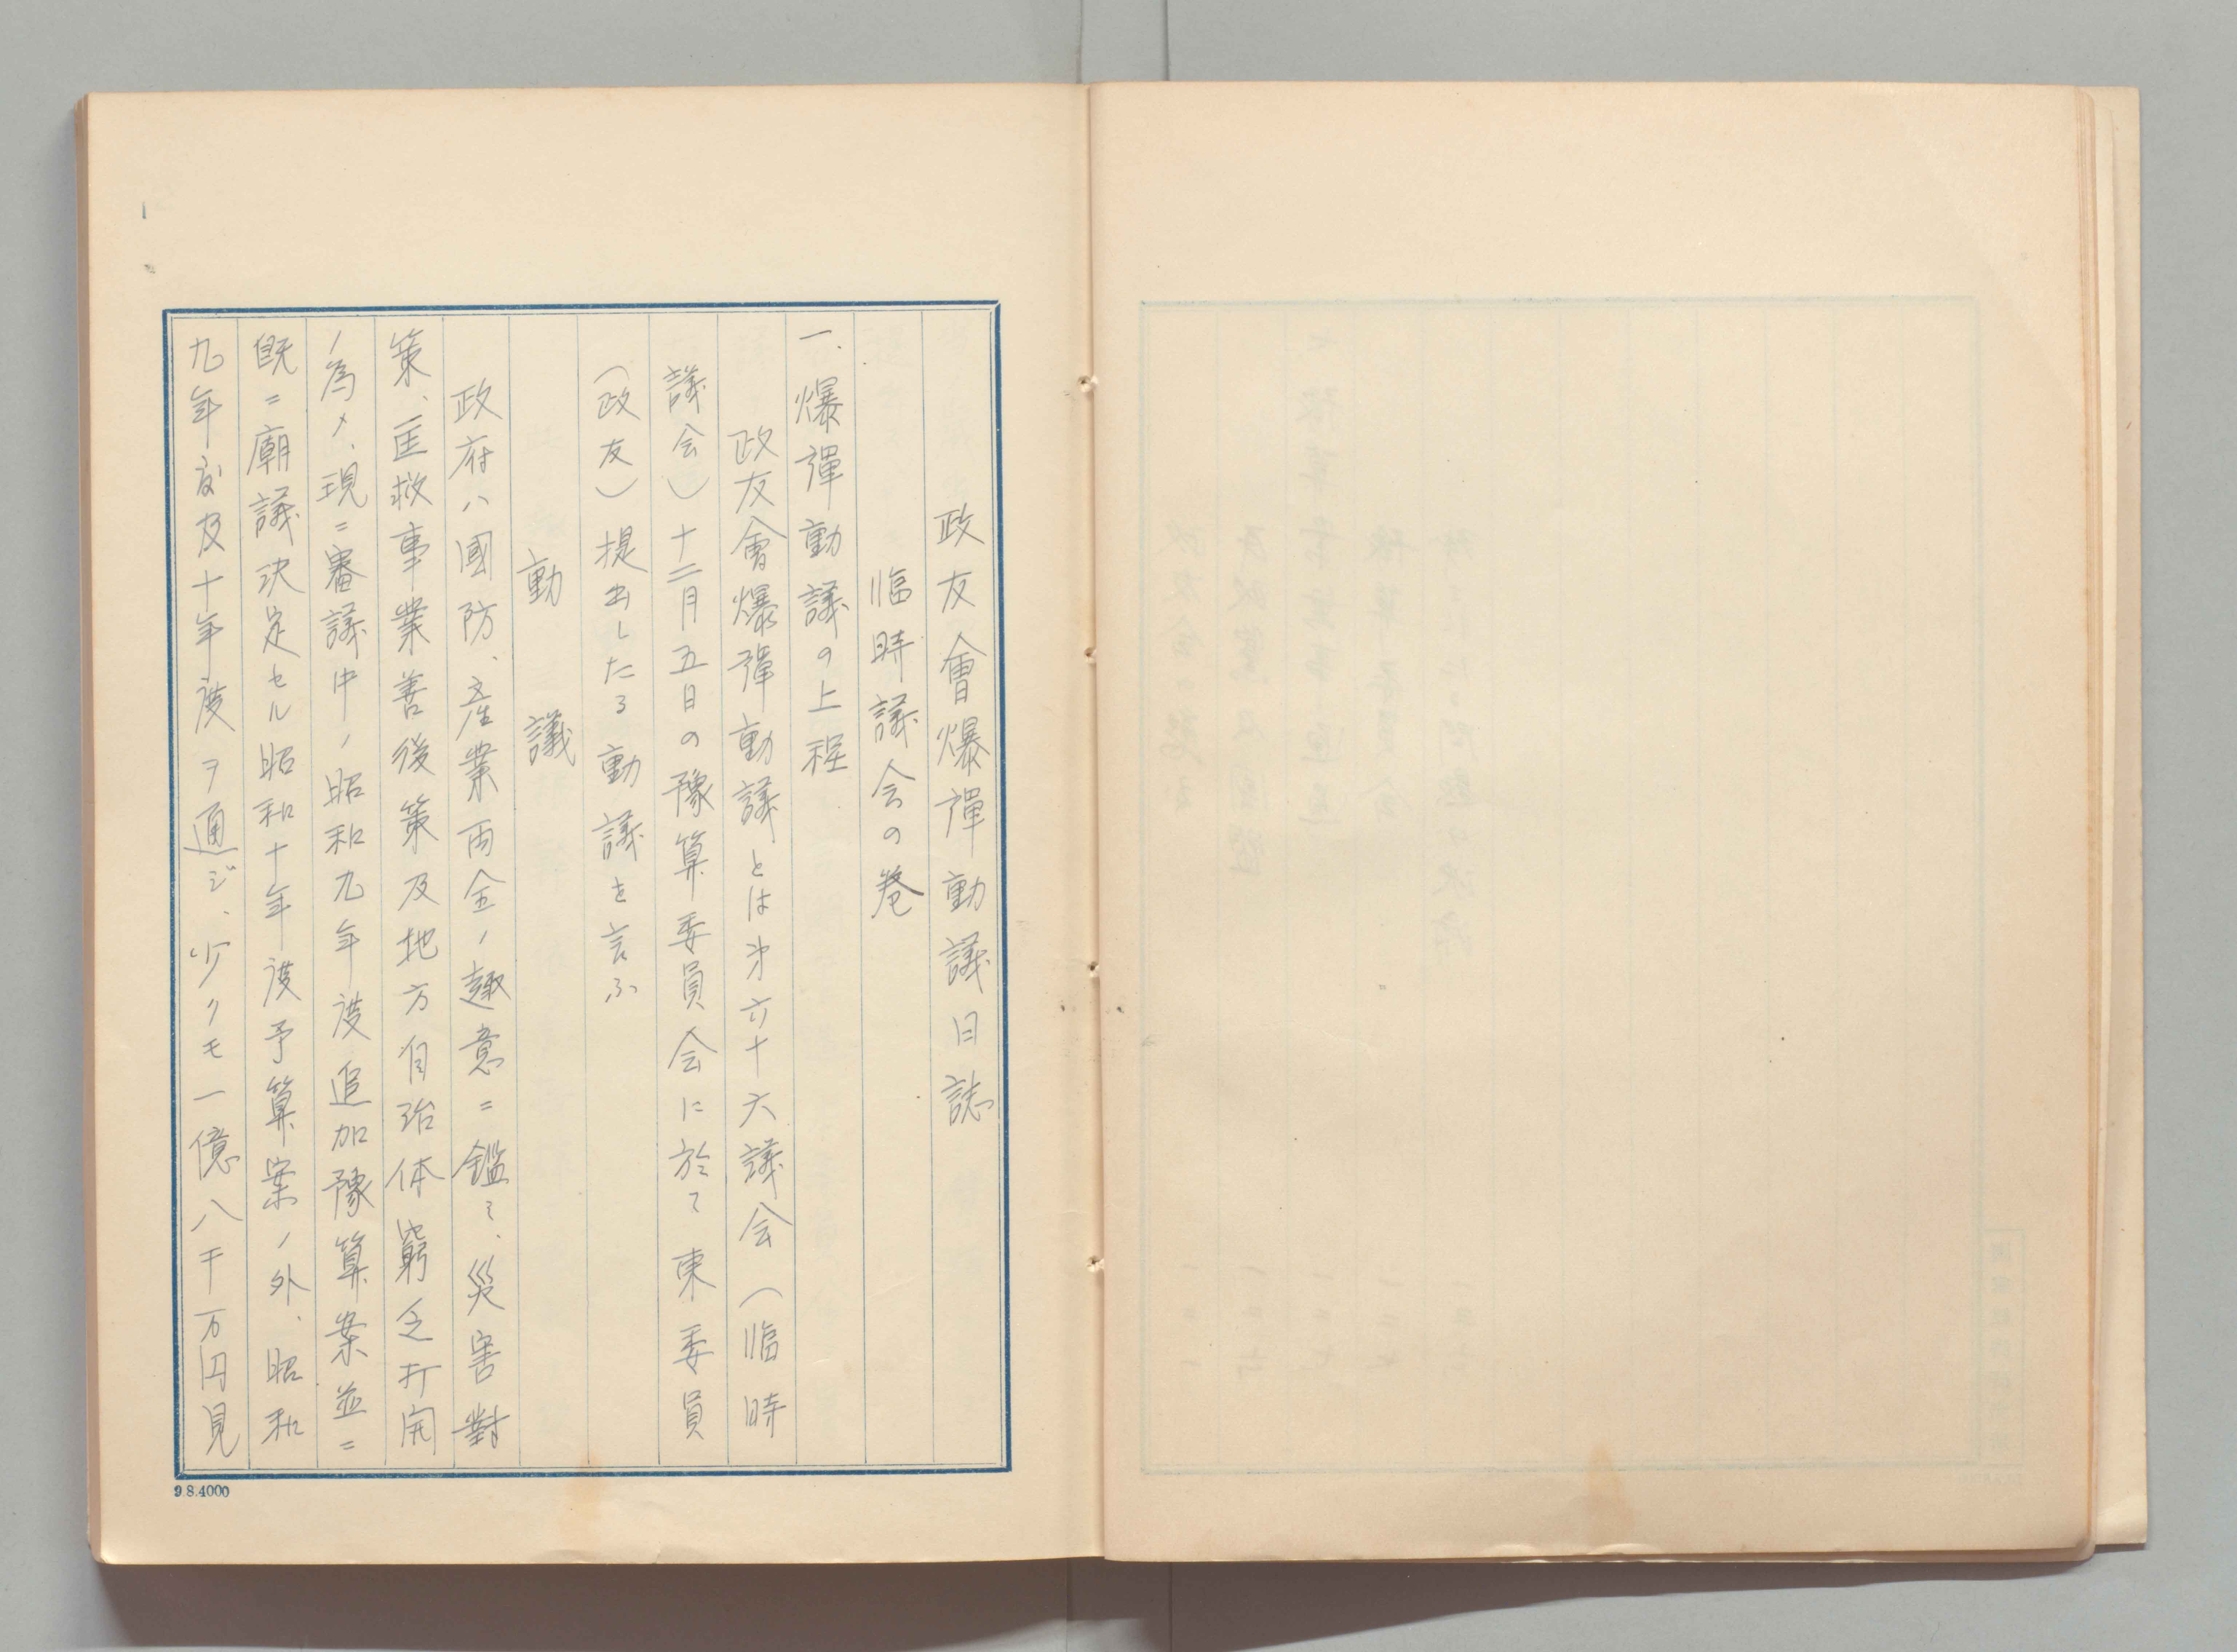 政友會爆弾動議日誌
臨時議会の巻
一、爆弾動議の上程
政友會爆弾動議とは才六十六議会（臨時
議会）十二月五日の豫算委員会に於て東委員
（政友）提出したる動議を言ふ
動議
政府ハ國防、産業両全ノ趣意ニ鑑ミ、災害對
策、匡救事業善後策及地方自治体窮乏打開
ノ為メ、現ニ審議中ノ昭和九年度追加豫算案並ニ
既ニ廟議決定セル昭和十年度予算案ノ外、昭和
九年度及十年度ヲ通ジ、少クモ一億八千万円見
9.8.4000